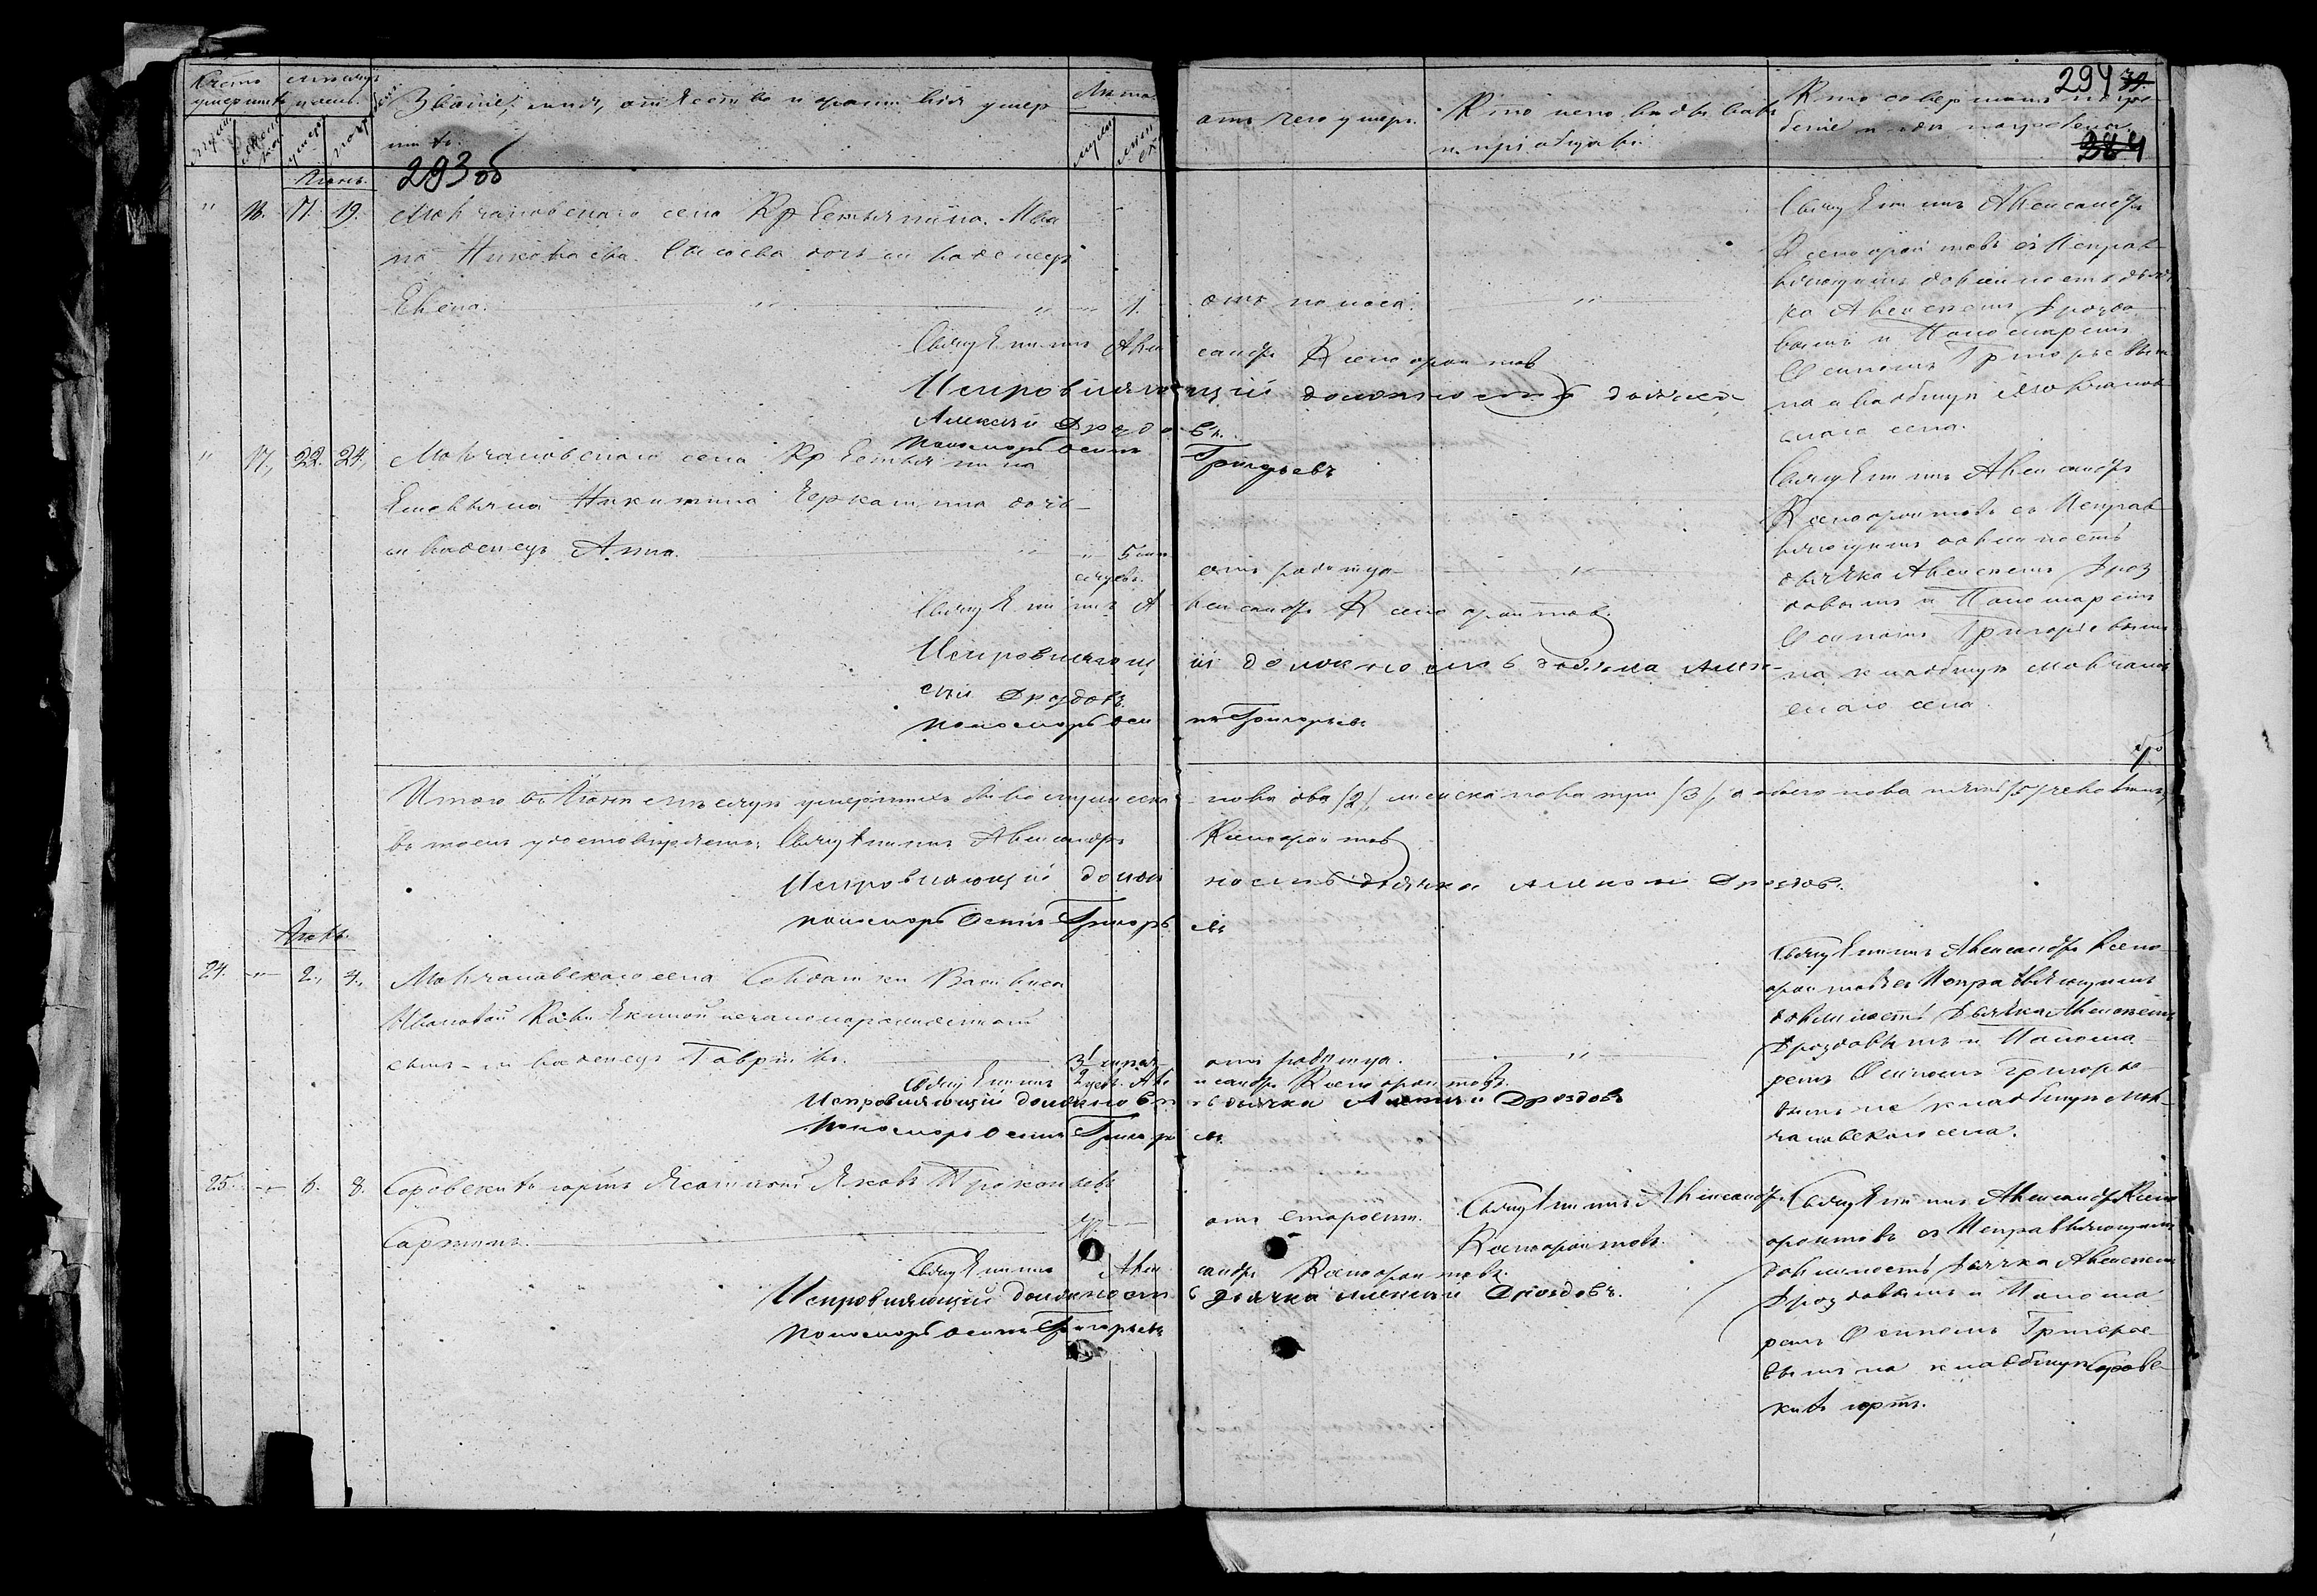 294
384
Званіе, имя, отчество и фамилія умер
шихъ.
Лѣта.
отъ чего умеръ.
Кто исповѣдывалъ
и пріобщалъ.
Кто совершалъ погре
беніе и гдѣ погребены.
293об
Іюнь.
" 16. 17. 19.
Молчановскаго села Крестьянина Ива
на Николаева Сысоева дочь младенецъ
Елена. " " 1.
отъ поноса. "
Священникъ Александръ
Ксенофонтовъ
Исправляющій должность дьячка
Алексей Дроздовъ.
Пономарь Осипъ Григорьевъ
Священникъ Александръ
Ксенофонтовъ съ Исправ
ляющимъ должность дьяч
ка Алексеемъ Дроздо
вымъ и Пономаремъ
Осипомъ Григорьевымъ
на кладбищѣ Молчанов
скаго села.
" 17. 22. 24.
Молчановскаго села Крестьянина
Емельяна Никитина Черкашина дочь
младенецъ Анна. " " 5 мѣ
сяцевъ.
отъ родимца "
Священникъ Александръ Ксенофонтовъ.
Исправляющій должность дьячка Алек
сей Дроздовъ.
Пономарь Осипъ Григорьевъ
Священникъ Александръ
Ксенофонтовъ съ Исправ
ляющимъ должность
дьячка Алексеемъ Дроз
довымъ и Пономаремъ
Осипомъ Григорьевымъ
на кладбищѣ Молчанов
скаго села.
Итого въ Іюнѣ мѣсяцѣ умершихъ было мужеска пола два /2/, женска пола три /3/, а обоего пола пять /5/ человѣкъ,
въ томъ удостовѣряемъ: Священникъ Александръ Ксенофонтовъ
Исправляющій должность дьячка Алексей Дроздовъ.
Пономарь Осипъ Григорьевъ
Іюль.
24. " 2. 4.
Молчановскаго села Солдатки Василисы
Ивановой незаконорожденной
сынъ младенецъ Гавріилъ.
отъ родимца. "
Священникъ Александръ Ксенофонтовъ.
Исправляющій должность дьячка Алексей Дроздовъ
Пономарь Осипъ Григорьевъ
Священникъ Александръ Ксено
фонтовъ съ Исправляющимъ
должность Дьячка Алексеемъ
Дроздовымъ и Понома
ремъ Осипомъ Григорье
вымъ на кладбищѣ Мол
чановскаго села.
25. " 6. 8.
Соровскихъ юртъ Ясашный Яковъ Прокопьевъ
отъ старости.
Священникъ Александръ
Ксенофонтовъ.
Священникъ Александръ Ксенофонтовъ
Исправляющій должность дьячка Алексей Дроздовъ.
Пономарь Осипъ Григорьевъ
Священникъ Александръ Ксено
фонтовъ съ Исправляющимъ
должность Дьячка Алексеемъ
Дроздовымъ и Понома
ремъ Осипомъ Григорье
вымъ на кладбищѣ Соровс
кихъ юртъ.